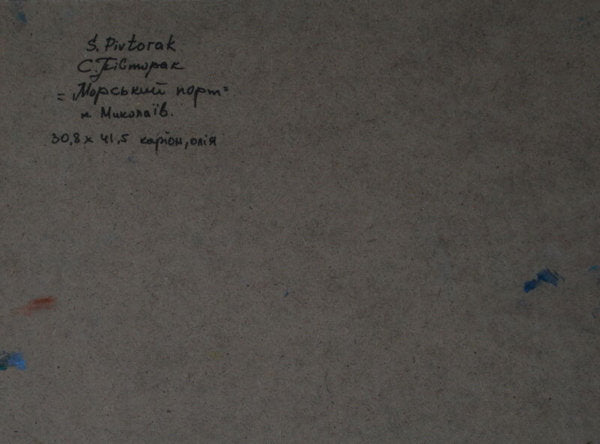 S. Pivtorak
С. Півторак
"Морський порт"
м. Миколаїв.
30,8 x 41,5 картон, олія